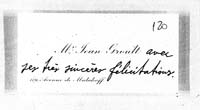 120
Mr Jean Groult avec
ses très sincères félicitations.
Avenue de Malakoff